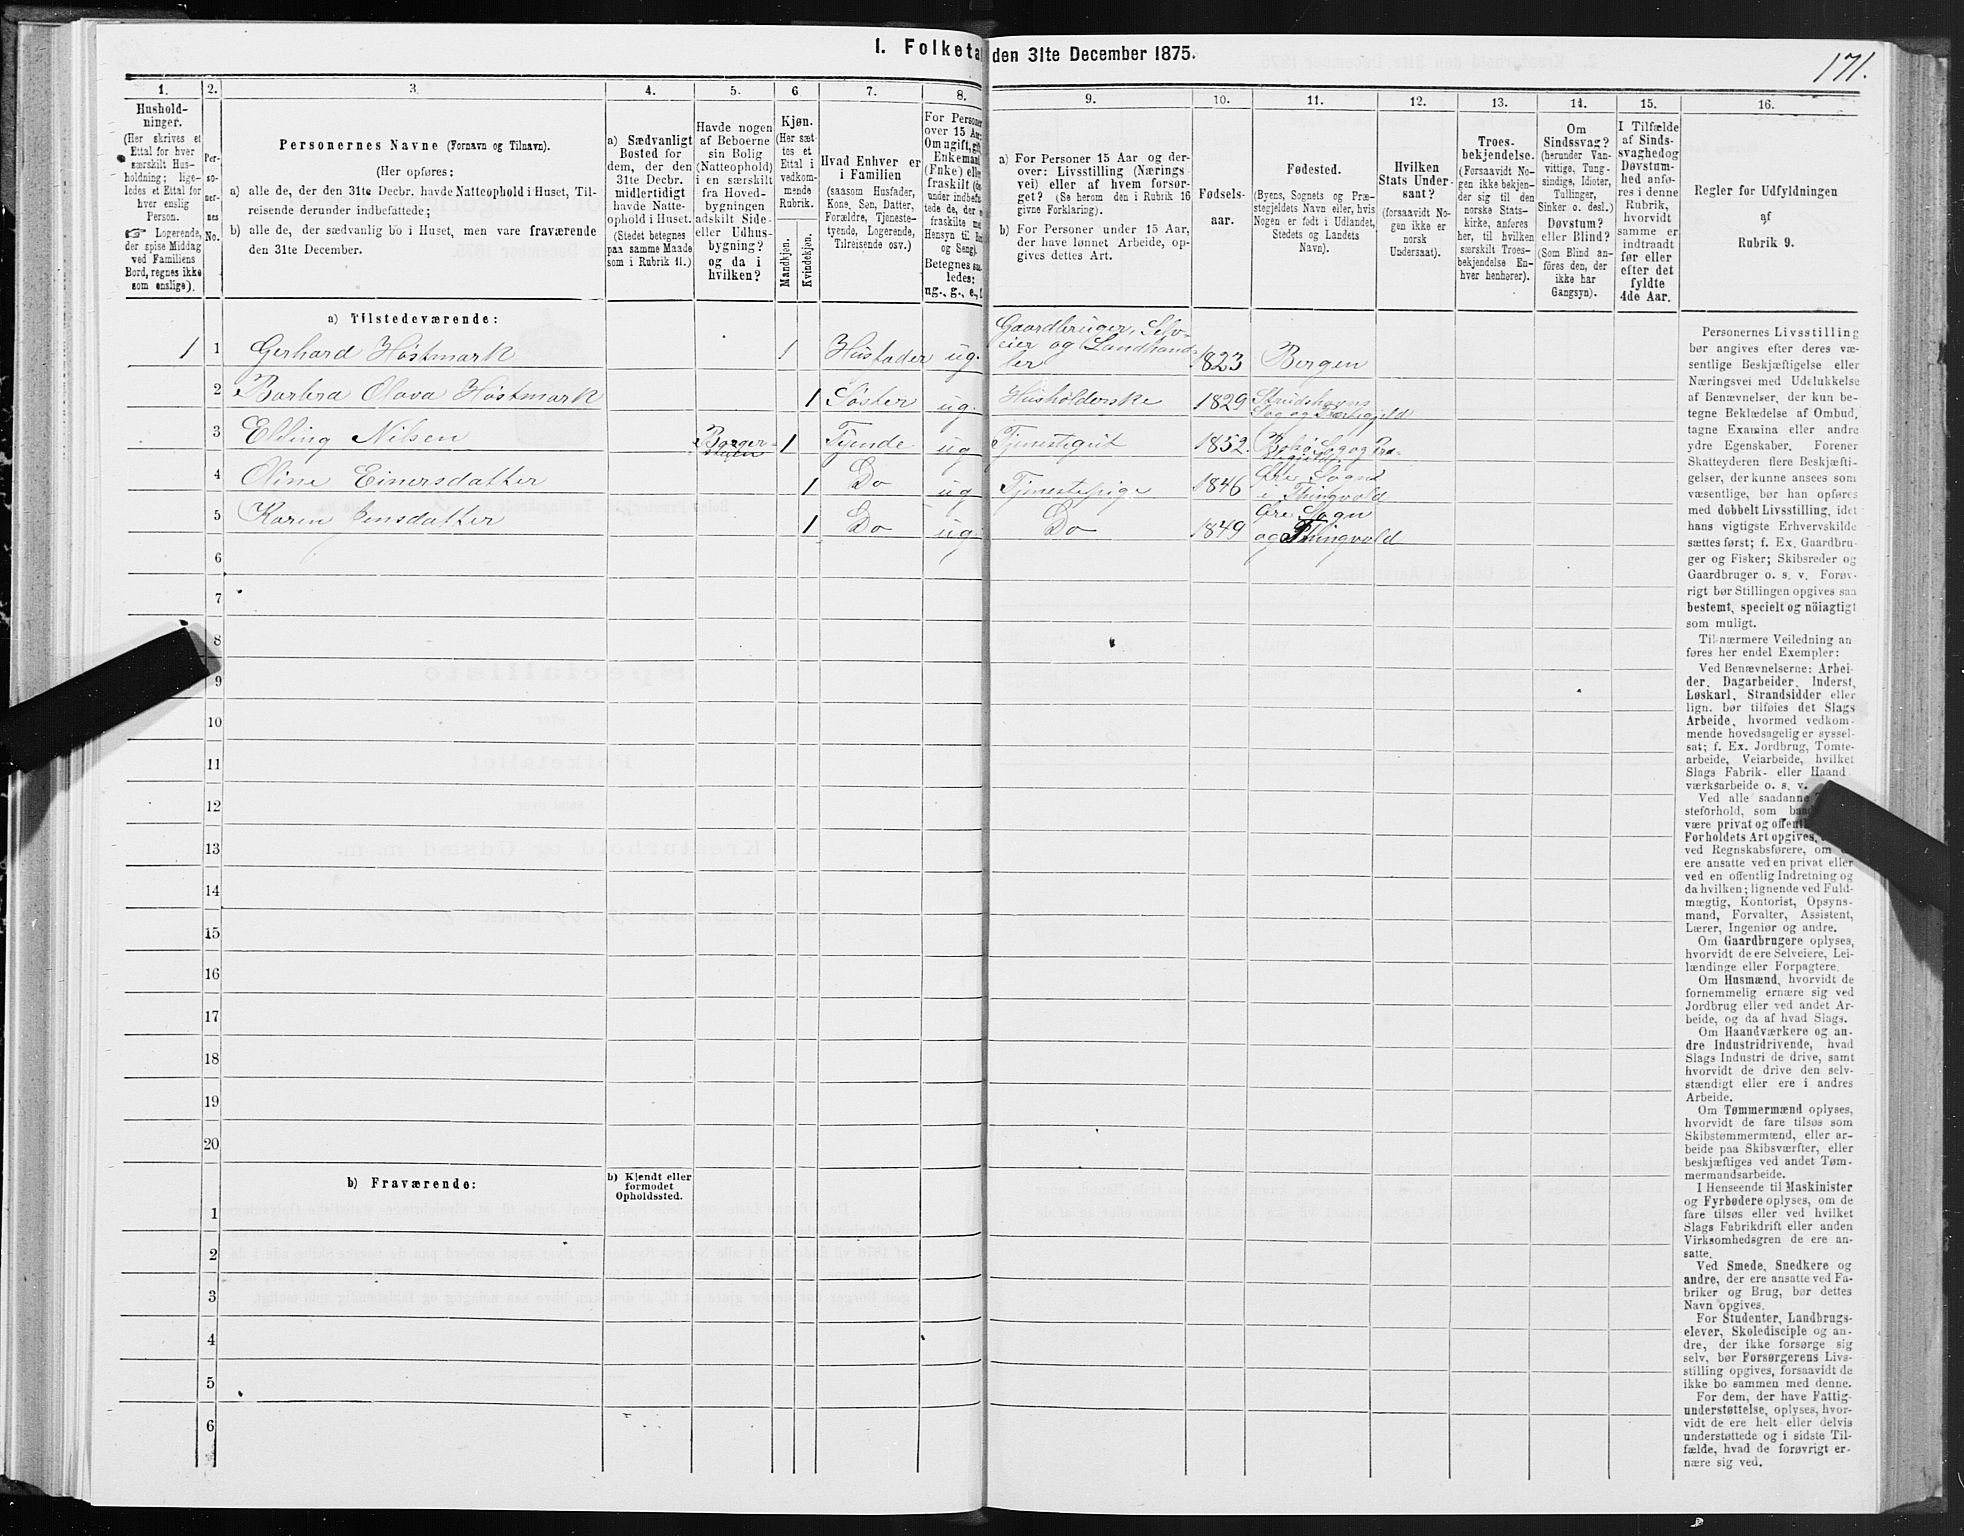 1. Folketa den 31te December 1875.
171.
1.
Hushold-
ninger.
(Her skrives et
Ettal for hver
særskilt Hus-
holdning; lige-
ledes et Ettal for
hver enslig
Person.
☞ Logerende,
der spise Middag
ved Familiens
Bord, regnes ikke
som enslige).
2.
Per-
so-
ner-
nes
No.
3.
Personernes Navne (Fornavn og Tilnavn).
(Her opføres:
a) alle de, der den 31te Decbr. havde Natteophold i Huset, Til-
reisende derunder indbefattede;
b) alle de, der sædvanlig bo i Huset, men vare fraværende
den 31te December.
4.
a) Sædvanligt
Bosted for
dem, der den
31te Decbr.
midlertidigt
havde Natte-
ophold i Huset.
(Stedet betegnes
paa samme Maade
som i Rubrik 11.)
5.
Havde nogen
af Beboerne
sin Bolig
(Natteophold)
i en særskilt
fra Hoved-
bygningen
adskilt Side-
eller Udhus-
bygning?
og da i
hvilken?
6
Kjøn.
(Her sæt-
tes et
Ettal i
vedkom-
mende
Rubrik.
Mandkjøn.
Kvindekjøn.
7.
Hvad Enhver er
i Familien
(saasom Husfader,
Kone, Søn, Datter,
Forældre, Tjeneste-
tyende, Logerende,
Tilreisende osv.)
8.
For Persone
over 15 Aar
Om ugift, gif
Enkemand
(Enke) elle
fraskilt
under indbefa
tede de, der
fraskilte med
Hensyn til Bo
og Seng).
Betegnes saa-
ledes:
ug., g., e.,
9.
a) For Personer 15 Aar og der-
over: Livsstilling (Nærings
vei) eller af hvem forsør-
get? (Se herom den i Rubrik 16
givne Forklaring).
b) For Personer under 15 Aar,
der have lønnet Arbeide, op-
gives dettes Art.
10.
Fødsels-
aar.
11.
Fødested.
(Byens, Sognets og Præ-
stegjeldets Navn eller, hvis
Nogen er født i Udlandet,
Stedets og Landets
Navn).
12.
Hvilken
Stats Under-
saat?
(forsaavidt No-
gen ikke er
norsk
Undersaat).
13.
Troes-
bekjendelse.
(Forsaavidt No-
gen ikke bekjen-
der sig til den
norske Stats-
kirke, anføres
her, til hvilken
særskilt Troes-
bekjendelse En-
hver henhører).
14.
Om
Sindssvag?
(herunder Van-
vittige, Tung-
sindige, Idioter,
Tullinger,
Sinker o. desl.)
Døvstum?
eller Blind?
(Som Blind an-
føres den, der
ikke har
Gangsyn).
15.
I Tilfælde
af Sinds-
svaghed og
Døvstum-
hed anfø-
res i denne
Rubrik,
hvorvidt
samme er
indtraadt
før eller
efter det
fyldte
4de Aar.
16.
Regler for Udfyldningen
af
Rubrik 9.
a) Tilstedeværende:
1 1 Gerhard Höstmark 1 Husfader ug. Gaardbruger, Selv-
eier og Landhand-
ler 1823 Bergen
2 Barbra Olava Höstmark 1 Søster ug. Husholderske 1829 Strudshavns
Sog og Præstegjeld
3 Elling Nilsen Borger-
stuen 1 Tyende ug Tjenestegut 1852. Bolsö Sog og Præ-
stegjeld
4 Oline Einersdatter 1 Do ug Tjenestepige 1846 Øre Sogn
i Thingvold
5 Karen Jensdatter 1 Do ug. Do 1849 Øre Sogn
og Thingvold
6
7
8
9
10
11
12
13
14
15
16
17
18
19
20
b) Fraværende:
b) Kjendt eller
formodet
Opholdssted.
1
2
3
4
5
6
Personernes Livsstilling
bør angives efter deres væ-
sentlige Beskjæftigelse eller
Næringsvei med Udelukkelse
af Benævnelser, der kun be-
tegne Beklædelse af Ombud,
tagne Examina eller andre
ydre Egenskaber. Forener
Skatteyderen flere Beskjæfti-
gelser, der kunne ansees som
væsentlige, bør han opføres
med dobbelt Livsstilling, idet
hans vigtigste Erhvervskilde
sættes først; f. Ex. Gaardbru-
ger og Fisker; Skibsreder og
Gaardbruger o. s. v. Forøv-
rigt bør Stillingen opgives saa
bestemt, specielt og nöiagtigt
som muligt.
Til nærmere Veiledning an
føres her endel Exempler:
Ved Benævnelserne: Arbei-
der, Dagarbeider, Inderst,
Løskarl, Strandsidder eller
lign. bør tilføies det Slags
Arbeide, hvormed vedkom-
mende hovedsagelig er syssel-
sat; f. Ex. Jordbrug, Tomte-
arbeide, Veiarbeide, hvilket
Slags Fabrik- eller Haand
værksarbeide o. s. v.
Ved alle saadanne
steforhold, som
være privat og
Forholdets Art opgives,
ved Regnskabsførere, om
ere ansatte ved en privat eller
ved en offentlig Indretning og
da hvilken; lignende ved Fuld-
mægtig, Kontorist, Opsyns-
mand, Forvalter, Assistent,
Lærer, Ingeniør og andre.
Om Gaardbrugere oplyses,
hvorvidt de ere Selveiere, Lei-
lændinge eller Forpagtere.
Om Husmænd, hvorvidt de
fornemmelig ernære sig ved
Jordbrug eller ved andet Ar-
beide, og da af hvad Slags.
Om Haandværkere og an-
dre Industridrivende, hvad
Slags Industri de drive, samt
hvorvidt de drive den selv-
stændigt eller ere i andres
Arbeide.
Om Tømmermænd oplyses,
hvorvidt de fare tilsøs som
Skibstømmermænd, eller ar-
beide paa Skibsværfter, eller
beskjæftiges ved andet Tøm-
mermandsarbeide.
I Henseende til Maskinister
og Fyrbødere oplyses, om de
fare tilsøs eller ved hvilket
Slags Fabrikdrift eller anden
Virksomhedsgren de ere an-
satte.
Ved Smede, Snedkere og
andre, der ere ansatte ved Fa-
briker og Brug, bør dettes
Navn opgives.
For Studenter, Landbrugs-
elever, Skoledisciple og an-
dre, der ikke forsørge sig
selv, bør Forsørgerens Livs-
stilling opgives, forsaavidt de
ikke bo sammen med denne.
For dem, der have Fattig-
understøttelse, oplyses, hvor-
vidt de ere helt eller delvis
understøttede og i sidste Til-
fælde, hvad de forøvrigt er-
nære sig ved.